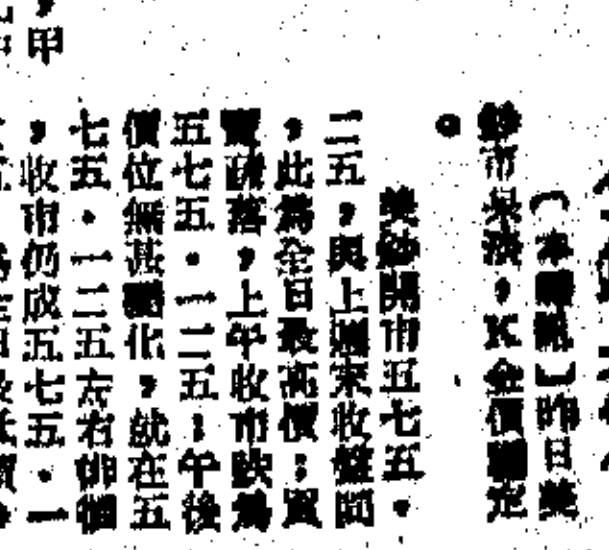 〔本報訊〕昨日美
鈔市呆滯，K金價穩定
。
美鈔開市五七五·
二五，與上週末收盤同
，此為全日最高價；買
賣疏落，上午收市跌為
五七五·一二五；午後
價位無甚變化，就在五
七五·一二五左右徘徊
，收市仍成五七五·一
，甲